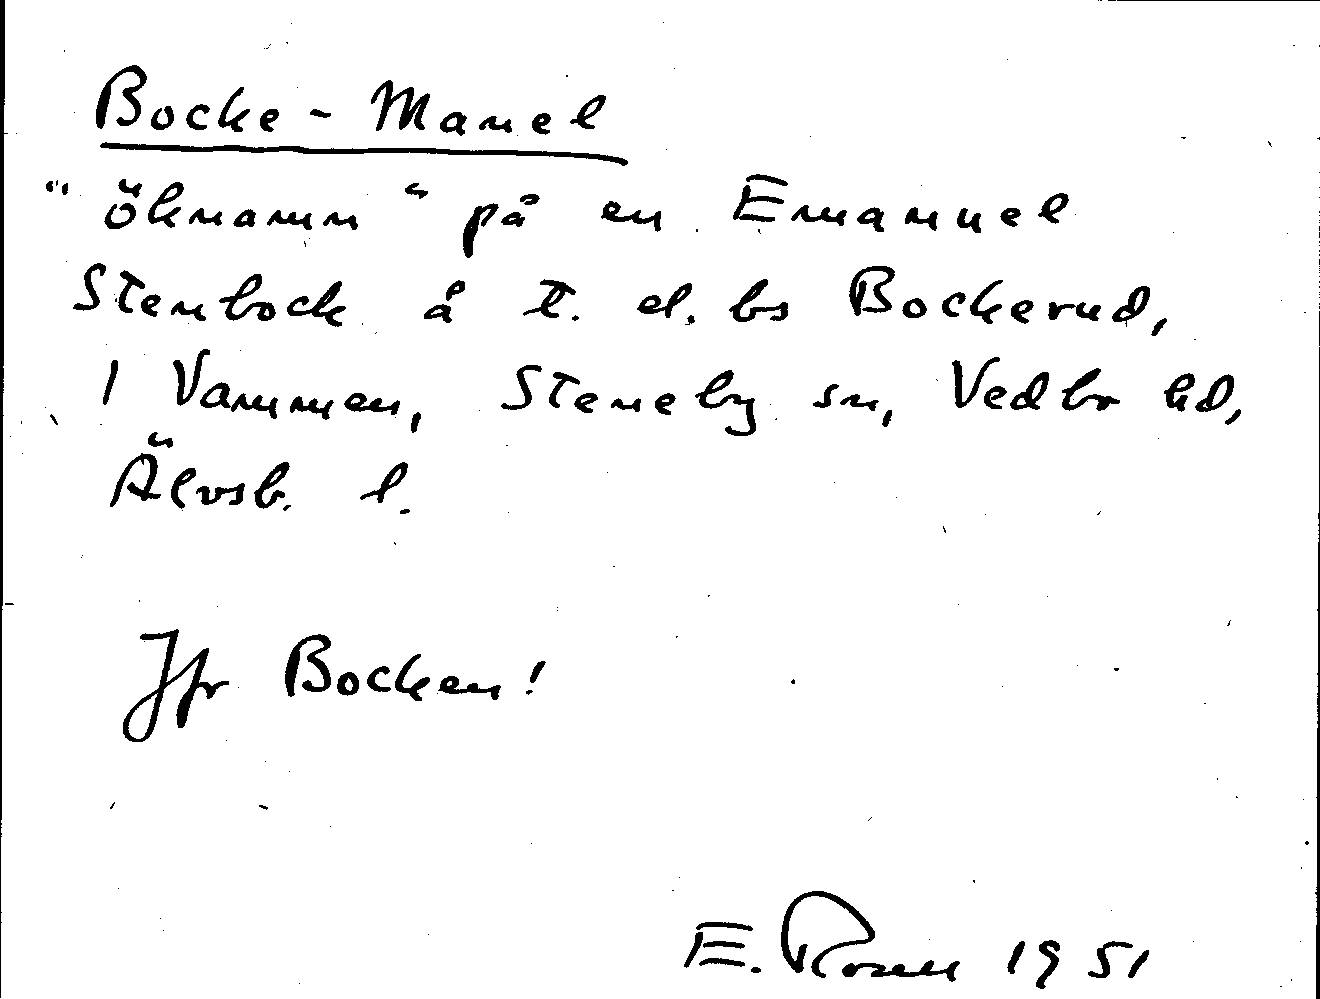 Bocke-Manel
"öknamn" på en Emanuel
Stenbock å t. d. bs Bockerud,
1 Vammen, Steneby sn, Vedbo hd,
Älvsb. l.
Jfr Bocken!
E. Rosen 1951